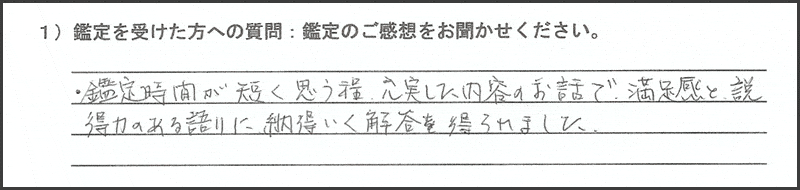 1）鑑定を受けた方への質問：鑑定のご感想をお聞かせください。
・鑑定時間が短く思う程、充実した内容のお話で、満足感と、説
得力のある語りに、納得いく解答を得られました。